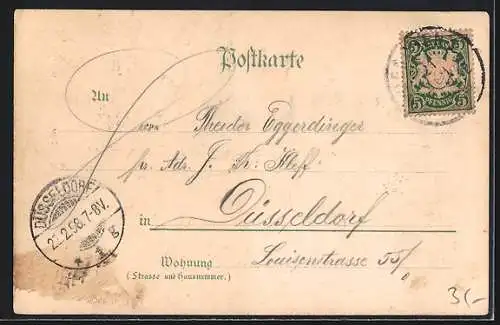 Postkarte
BAYERN
5 5
PFENNIG
An
Herrn Theodor Eggerdinger
p. Adr. J. Fr. Kleff
in Düsseldorf
Wohnung
(Strasse und Hausnummer.)
Louisenstrasse 55/
DÜSSELDORF
2.98.7-8V.
3/-